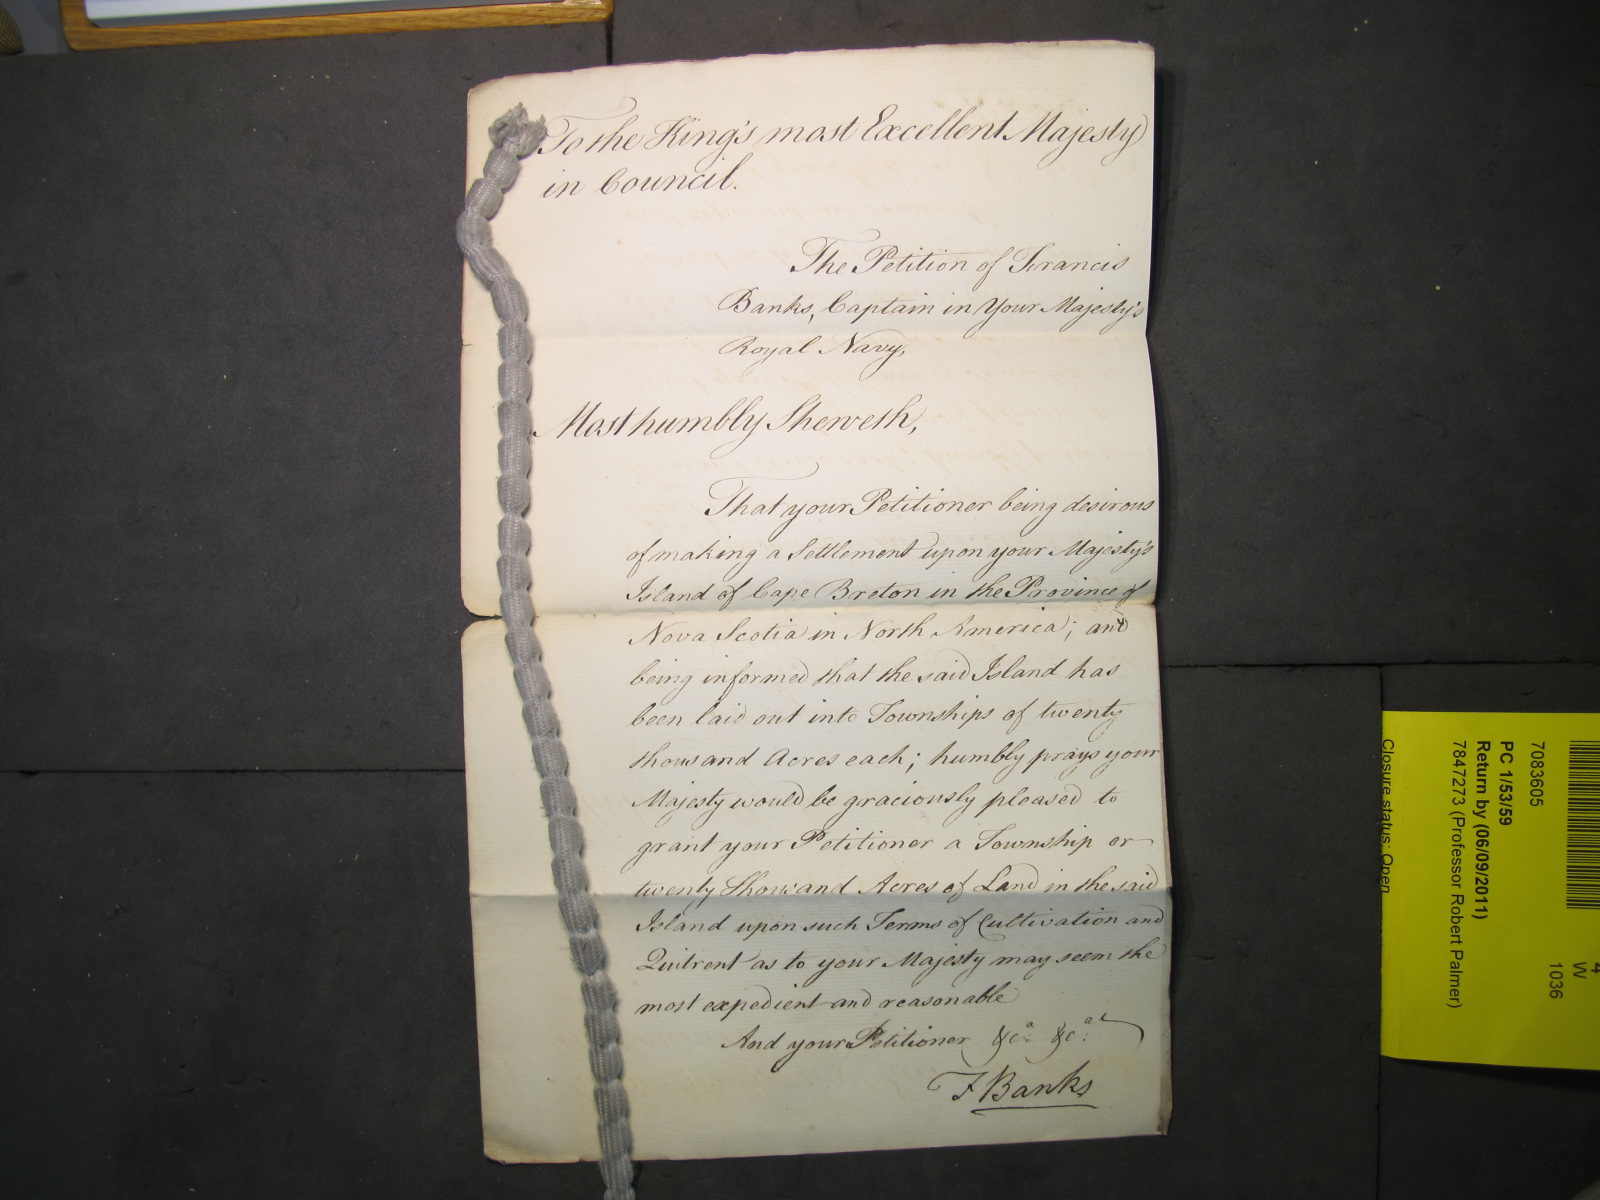 To the King's most Excellent Majesty
in Council.
The Petition of Francis
Banks, Captain in Your Majesty's
Royal Navy,
Most humbly Sheweth,
That your Petitioner being desirous
of making a Settlement upon your Majesty's
Island of Cape Breton in the Province of
Nova Scotia in North America; and
being informed that the said Island has
been laid out into Townships of twenty
thousand Acres each; humbly prays your
Majesty would be graciously pleased to
grant your Petitioner a Township or
twenty thousand Acres of Land in the said
Island upon such Terms of Cultivation and
Quitrent as to your Majesty may seem the
most expedient and reasonable
And your Petitioner &ca: &ca:
F Banks
7083605
PC 1/53/59
Return by (06/09/2011)
7847273 (Professor Robert Palmer)
Closure status: Open
4
W
1036